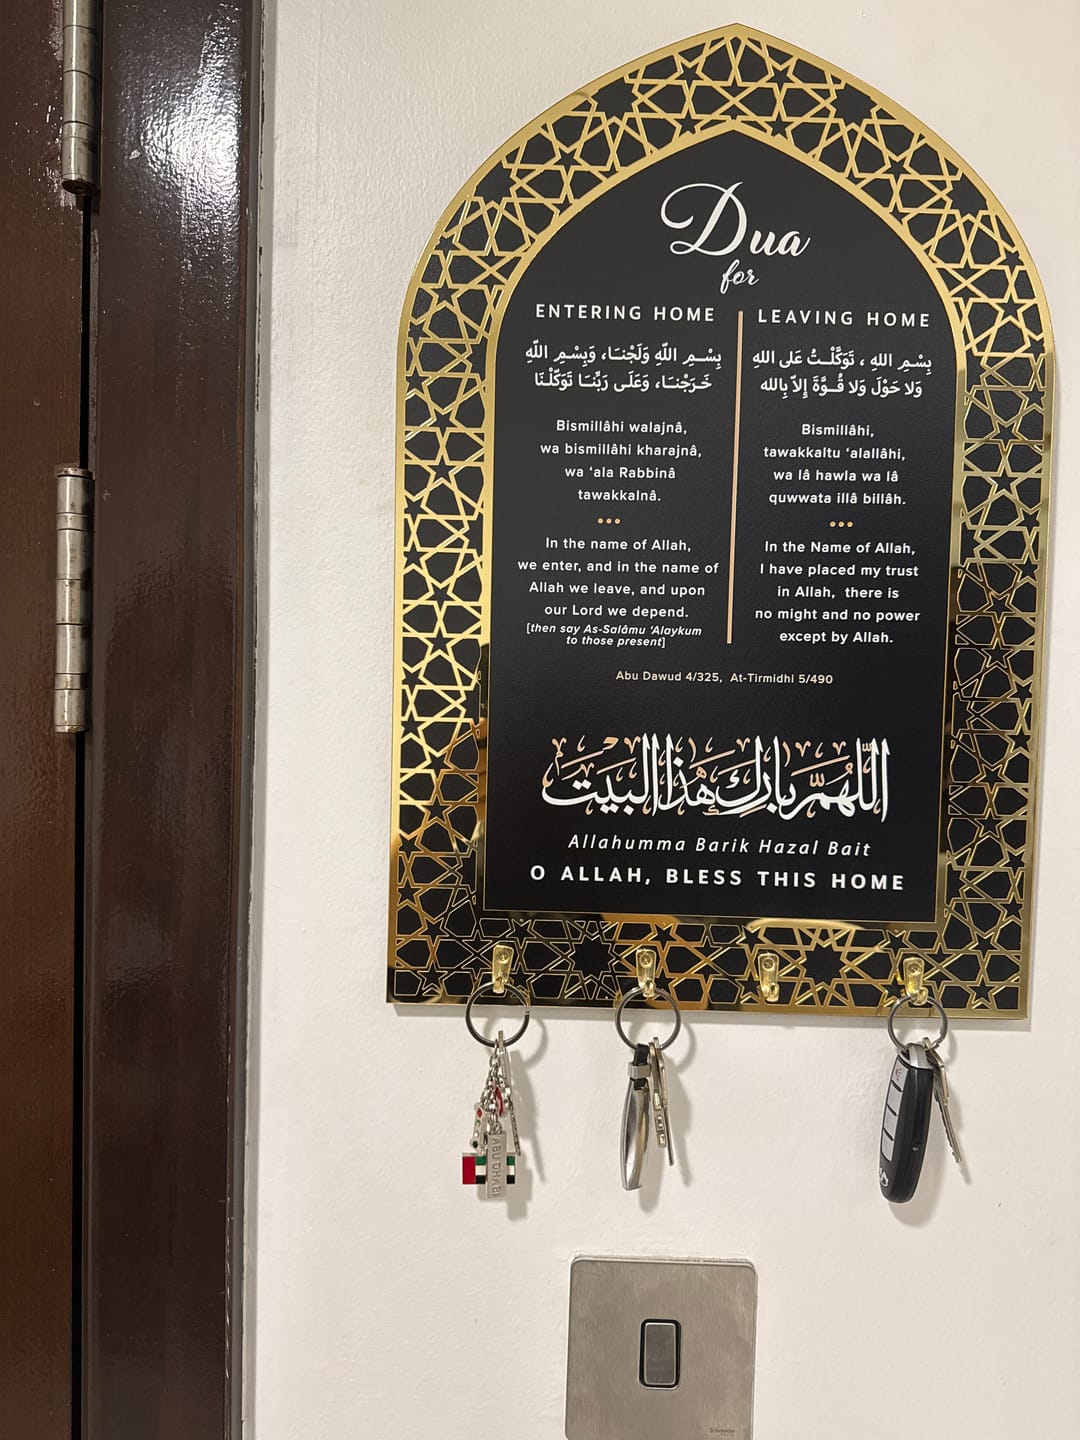 Dua
for
ENTERING HOME
بِسْمِ اللّهِ وَلَجْنَا، وَبِسْمِ اللّهِ
خَرَجْنَا، وَعَلَى رَبِّنَا تَوَكّلْنَا
Bismillâhi walajnâ,
wa bismillâhi kharajnâ,
wa ‘ala Rabbinâ
tawakkalnâ.
In the name of Allah,
we enter, and in the name of
Allah we leave, and upon
our Lord we depend.
[then say As-Salâmu ‘Alaykum
to those present]
LEAVING HOME
بِسْمِ اللهِ ، تَوَكَّلْتُ عَلى اللهِ
وَلا حَوْلَ وَلا قُوَّةَ إِلاّ بِالله
Bismillâhi,
tawakkaltu ‘alallâhi,
wa lâ hawla wa lâ
quwwata illâ billâh.
In the Name of Allah,
I have placed my trust
in Allah, there is
no might and no power
except by Allah.
Abu Dawud 4/325, At-Tirmidhi 5/490
اللّهُمَّ بَارِك هَذَا البَيَتْ
Allahumma Barik Hazal Bait
O ALLAH, BLESS THIS HOME
ABU DHABI
Schneider